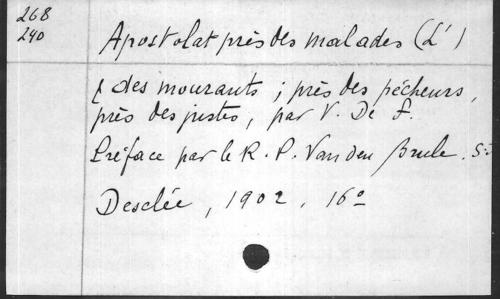 268
240
Apostolat près des malades (L')
& des mourants ; près des pécheurs,
près des justes, par V. De F.
Préface par le R. P. Van den Brule. S.J
Desclée, 1902. 16º